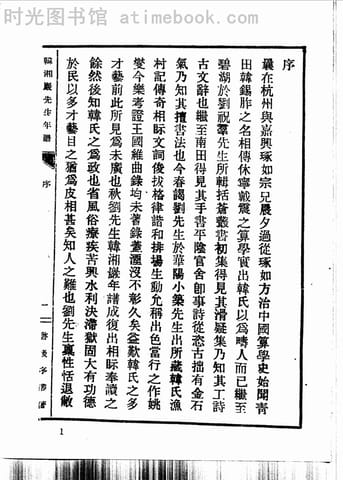 时光图书馆 https://atimebook.com
序
曩在杭州與嘉興琢如宗兄晨夕過從琢如方治中國算學史始聞青
田韓錫胙之名相傳休寧戴震之算學實出韓氏以爲疇人而已繼至
碧湖於劉祝羣先生所輯括蒼叢書初集得見其滑疑集乃知其工詩
古文辭也繼至南田得見其手書平陰官舍卽事詩從恣古拙有金石
氣乃知其擅書法也今春謁劉先生於華陽小築先生出所藏韓氏漁
村記傳奇相眎文詞俊拔格律諧和排場生動允稱出色當行之作姚
燮今樂考證王國維曲錄均未著錄蓋湮沒不彰久矣益歎韓氏之多
才藝前此所見爲未廣也秋劉先生韓湘巖年譜成復出相眎奉讀之
餘然後知韓氏之爲政也省風俗療疾苦興水利決滯獄固大有功德
於民以多才藝目之猶爲皮相甚矣知人之難也劉先生稟性恬退敝
韓湘巖先生年譜
序
一
1